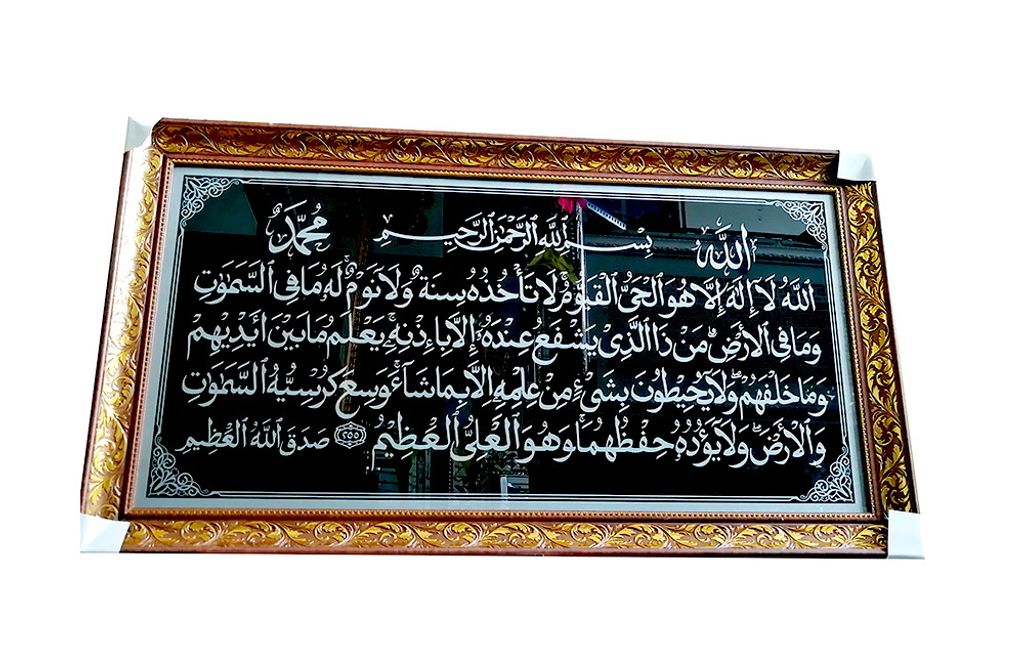 الله بِسْمِ ٱللَّهِ ٱلرَّحْمَٰنِ ٱلرَّحِيمِ مُحَمَّدٌ
اَللّٰهُ لَآ إِلٰهَ إِلَّا هُوَ ٱلْحَىُّ ٱلْقَيُّوْمُ ۚ لَا تَأْخُذُهُ سِنَةٌ وَّلَا نَوْمٌ ۚ لَهُ مَا فِى ٱلسَّمٰوٰتِ
وَمَا فِى ٱلْأَرْضِ ۗ مَنْ ذَا ٱلَّذِىْ يَشْفَعُ عِنْدَهُ إِلَّا بِإِذْنِهِ ۚ يَعْلَمُ مَا بَيْنَ أَيْدِيْهِمْ
وَمَا خَلْفَهُمْ ۖ وَلَا يُحِيْطُوْنَ بِشَىْءٍ مِنْ عِلْمِهِ إِلَّا بِمَا شَآءَ ۚ وَسِعَ كُرْسِيُّهُ ٱلسَّمٰوٰتِ
وَٱلْأَرْضَ ۖ وَلَا يَؤُدُهُ حِفْظُهُمَا ۚ وَهُوَ ٱلْعَلِىُّ ٱلْعَظِيْمُ ٢٥٥ صَدَقَ ٱللّٰهُ ٱلْعَظِيْمُ